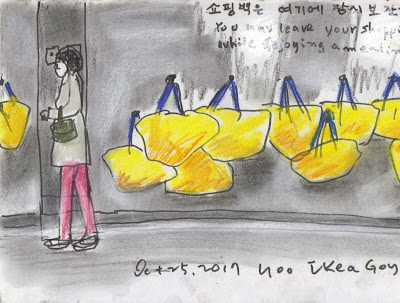 쇼핑백은 여기에 잠시 보관
You may leave your shoppi
while enjoying a meal in
Oct 25, 2017 yoo IKea Goy